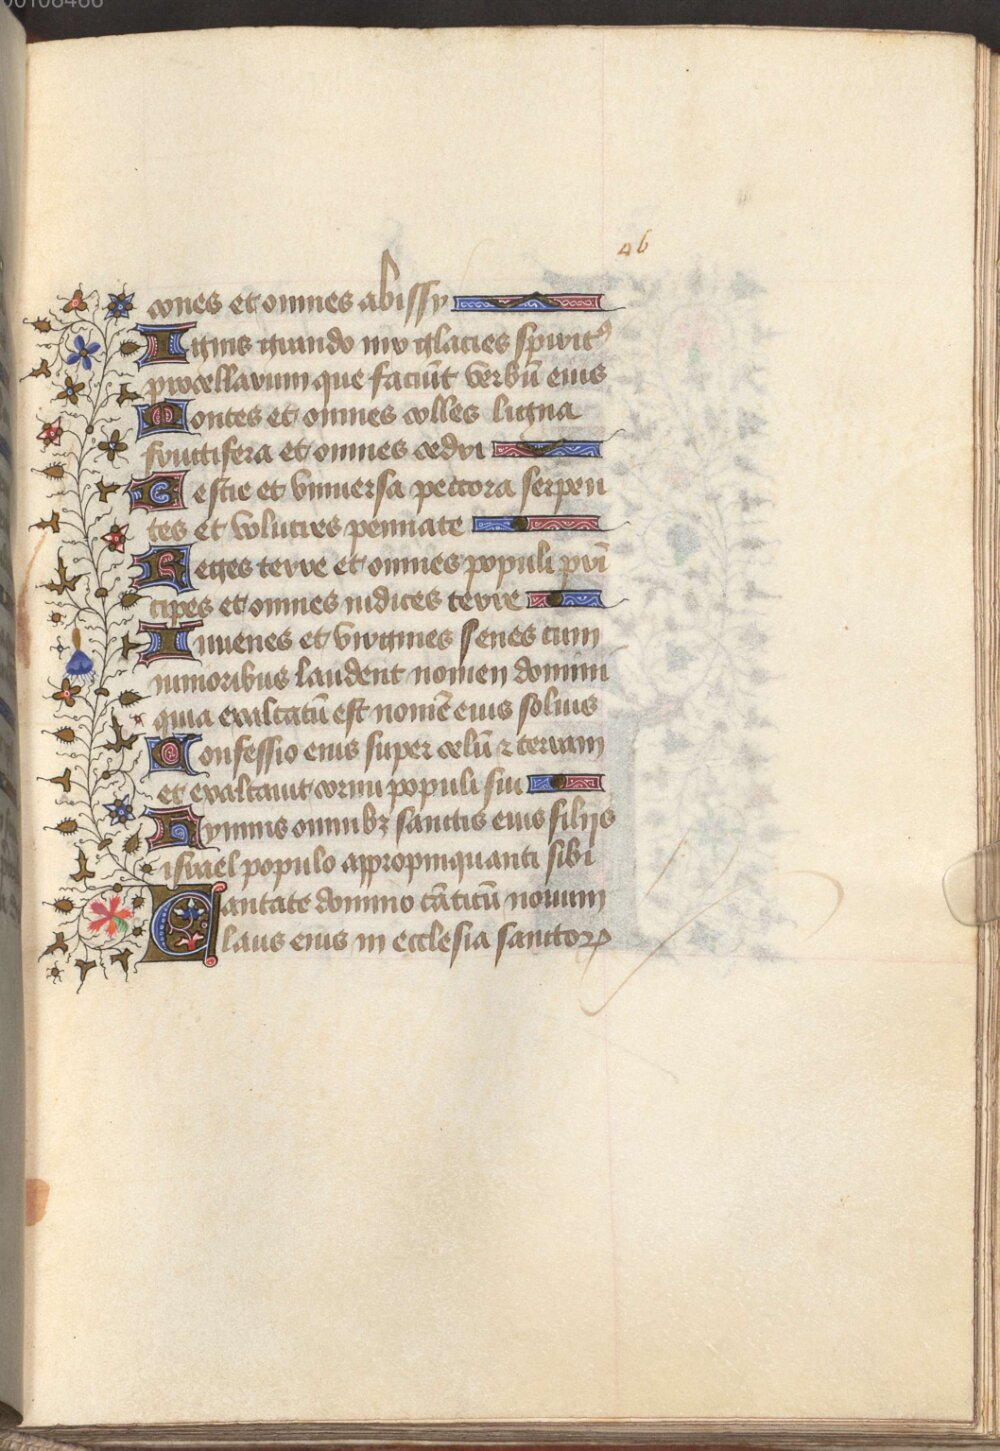 00108466
46
cones et omnes abissy
Ignis grando nix glacies spirit⁹
procellarum que faciūt verbū eius
Montes et omnes colles ligna
fructifera et omnes cedri
Bestie et vniuersa peccora serpen
tes et volucres pennate
Reges terre et omnes populi prī
cipes et omnes iudices terre
Iuuenes et virgines senes cum
iunioribus laudent nomen domini
quia exaltatū est nomē eius solius
Confessio eius super celū ⁊ terram
et exaltauit cornu populi sui
Hymnis omnibꝫ sanctis eius filijs
israel populo appropinquanti sibi
Cantate domino cāticū nouum
laus eius in ecclesia sanctoꝝ